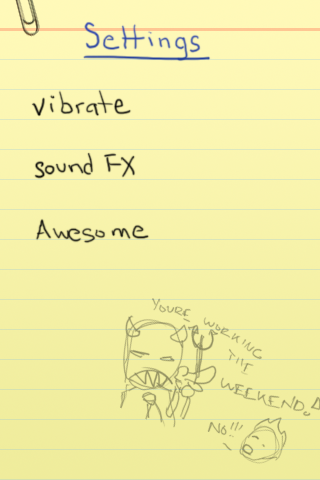 Settings
vibrate
sound FX
Awesome
YOURE WORKING
THE
WEEKEND.
NO!!!